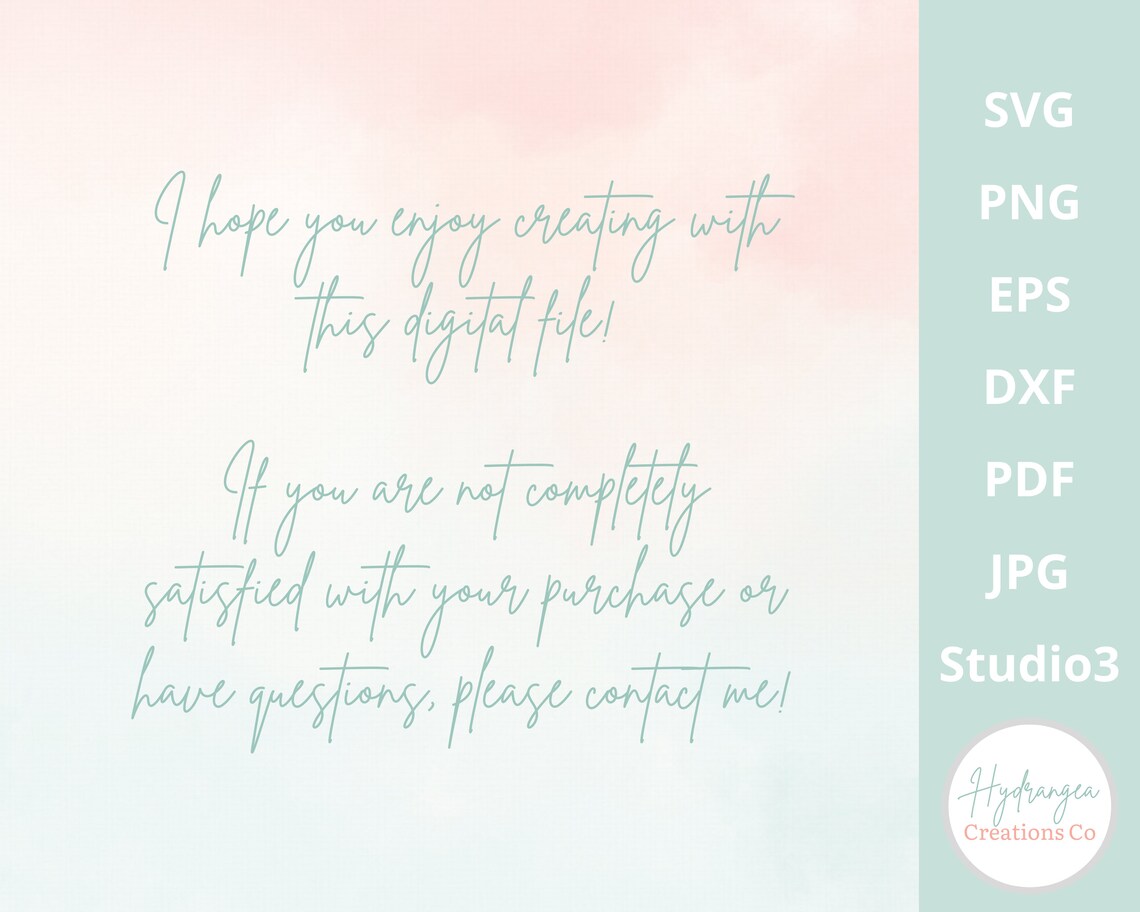 I hope you enjoy creating with
this digital file!
If you are not completely
satisfied with your purchase or
have questions, please contact me!
SVG
PNG
EPS
DXF
PDF
JPG
Studio3
Hydrangea
Creations Co